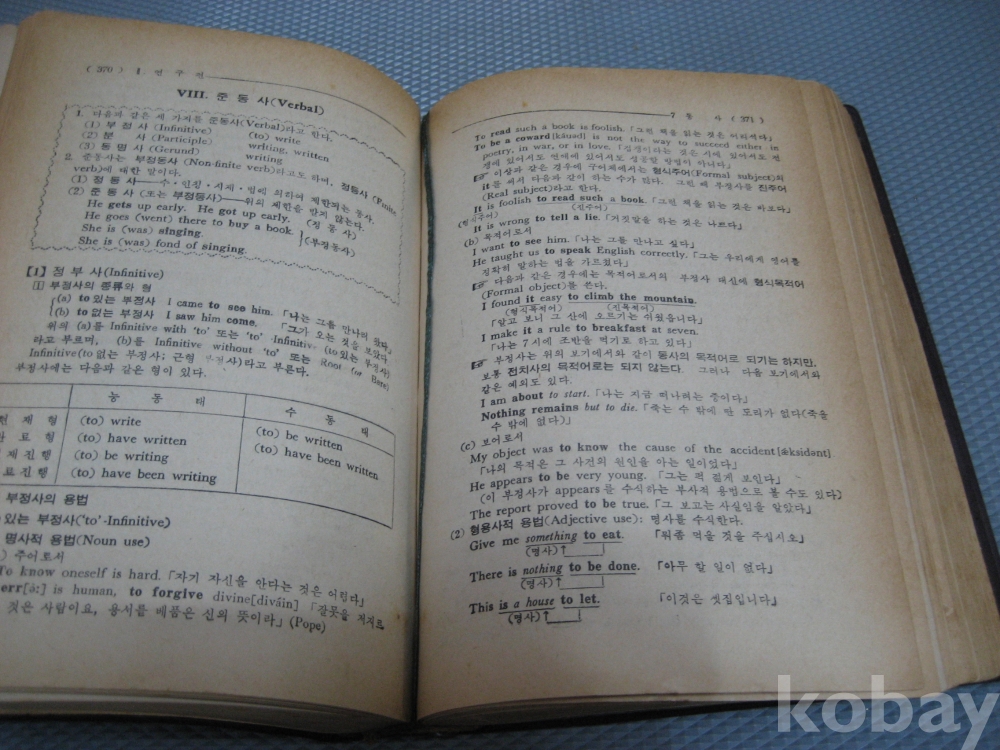 ( 370 ) Ⅰ. 연 구 편
VIII. 준 동 사(Verbal)
1. 다음과 같은 세 가지를 준동사(Verbal)라고 한다.
(1) 부 정 사 (Infinitive) (to) write
(2) 분 사 (Participle) writing, written
(3) 동 명 사 (Gerund) writing
2. 준동사는 부정동사 (Non-finite verb)라고도 하며, 정동사 (Finite
verb)에 대한 말이다.
(1) 정 동 사——수·인칭·시제·법에 의하여 제한되는 동사.
(2) 준 동 사 (또는 부정동사)——위의 제한을 받지 않는다.
He gets up early. He got up early. (정 동 사)
He goes (went) there to buy a book.
She is (was) singing. (부정동사)
She is (was) fond of singing.
【1】 정 부 사(Infinitive)
① 부정사의 종류와 형
(a) to있는 부정사 I came to see him. 「나는 그를 만나러 왔다」
(b) to없는 부정사 I saw him come. 「그가 오는 것을 보았다」
위의 (a)를 Infinitive with 'to' 또는 'to'-Infinitive (to있는 부정사)
라고 부르며, (b)를 Infinitive without 'to' 또는 Root (or Bare)
Infinitive(to없는 부정사; 근형 부정사)라고 부른다.
부정사에는 다음과 같은 형이 있다.
능 동 태 수 동 태
현 재 형 (to) write (to) be written
완 료 형 (to) have written (to) have been written
제진행 (to) be writing
료진행 (to) have been writing
부정사의 용법
있는 부정사('to'-Infinitive)
명사적 용법(Noun use)
주어로서
To know oneself is hard. 「자기 자신을 안다는 것은 어렵다」
err[əː] is human, to forgive divine[diváin] 「잘못을 저지르
것은 사람이요, 용서를 베품은 신의 뜻이라」(Pope)
7 동 사 ( 371 )
To read such a book is foolish. 「그런 책을 읽는 것은 어리석다」
To be a coward[káuəd] is not the way to succeed either in
poetry, in war, or in love. 「겁쟁이라는 것은 시에 있어서도 전
쟁에 있어서도 연애에 있어서도 성공할 방법이 아니다」
☞ 이상과 같은 경우에 구어체에서는 형식주어(Formal subject)의
it를 써서 다음과 같이 하는 수가 많다. 그런 때 부정사를 진주어
(Real subject)라고 한다.
It is foolish to read such a book. 「그런 책을 읽는 것은 바보다」
(형식주어) (진주어)
It is wrong to tell a lie. 「거짓말을 하는 것은 나쁘다」
(b) 목적어로서
I want to see him. 「나는 그를 만나고 싶다」
He taught us to speak English correctly. 「그는 우리에게 영어를
정확히 말하는 법을 가르쳤다」
☞ 다음과 같은 경우에는 목적어로서의 부정사 대신에 형식목적어
(Formal object)를 쓴다.
I found it easy to climb the mountain.
(형식목적어) (진목적어)
「알고 보니 그 산에 오르기는 쉬웠읍니다」
I make it a rule to breakfast at seven.
「나는 7시에 조반을 먹기로 하고 있다」
☞ 부정사는 위의 보기에서와 같이 동사의 목적어로 되기는 하지만,
보통 전치사의 목적어로는 되지 않는다. 그러나 다음 보기에서와
같은 예외도 있다.
I am about to start. 「나는 지금 떠나려는 중이다」
Nothing remains but to die. 「죽는 수 밖에 딴 도리가 없다(죽을
수 밖에 없다)」
(c) 보어로서
My object was to know the cause of the accident[ǽksidənt]
「나의 목적은 그 사건의 원인을 아는 일이었다」
He appears to be very young. 「그는 퍽 젊게 보인다」
(이 부정사가 appears를 수식하는 부사적 용법으로 볼 수도 있다)
The report proved to be true. 「그 보고는 사실임을 알았다」
(2) 형용사적 용법(Adjective use): 명사를 수식한다.
Give me something to eat. 「뭐좀 먹을 것을 주십시오」
(명사)↑
There is nothing to be done. 「아무 할 일이 없다」
(명사)↑
This is a house to let. 「이것은 셋집입니다」
(명사)↑
kobay